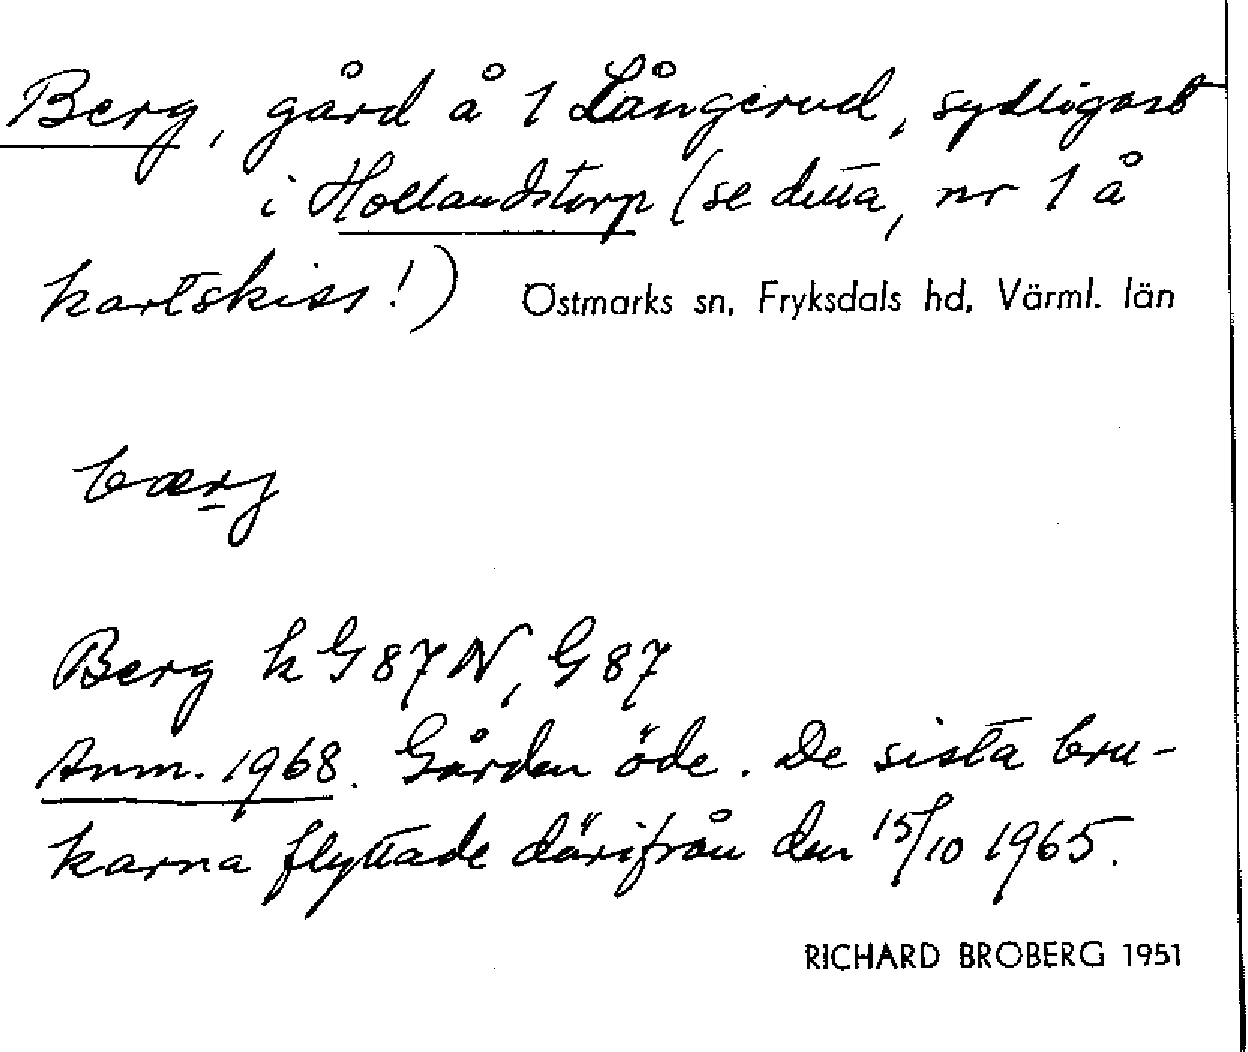 Berg, gård å 1 Långerud, sydligast
i Hollandstorp (se detta, nr 1 å
kartskiss!) Östmarks sn, Fryksdals hd, Värml. län
bærj
Berg k G 87 N, G 87
Anm. 1968. Gården öde. De sista bru-
karna flyttade därifrån den 15/10 1965.
RICHARD BROBERG 1951